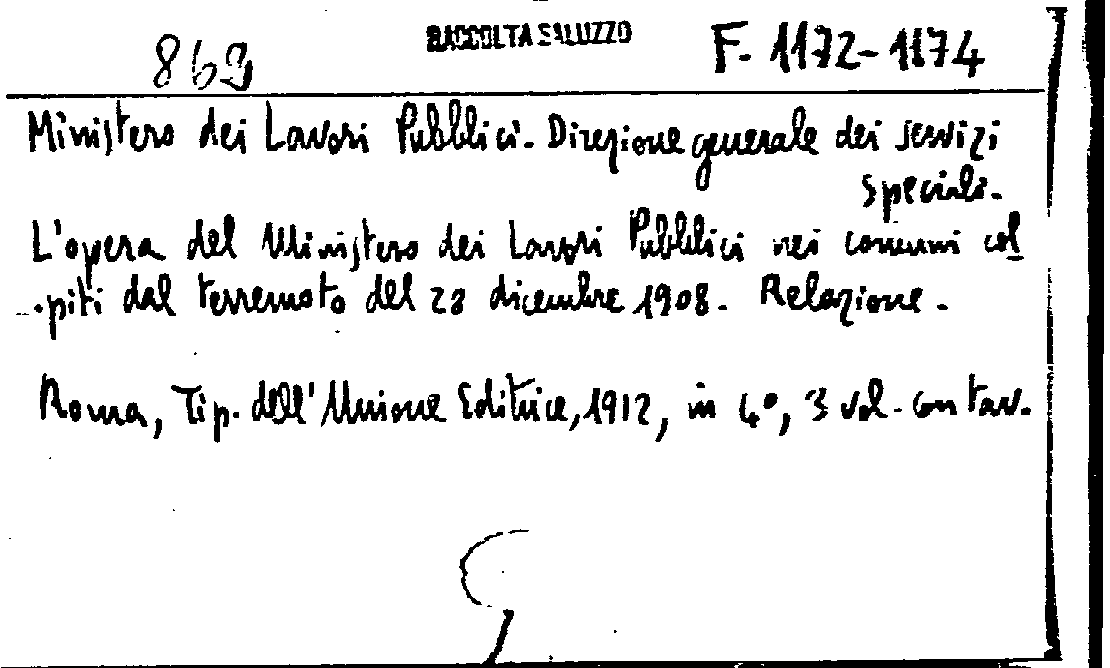 869 RACCOLTA SALUZZO F. 1172-1174
Ministero dei Lavori Pubblici. Direzione generale dei servizi
speciali.
L'opera del Ministero dei Lavori Pubblici nei comuni col
piti dal terremoto del 28 dicembre 1908. Relazione.
Roma, Tip. dell'Unione Editrice, 1912, in 4°, 3 vol. con tav.